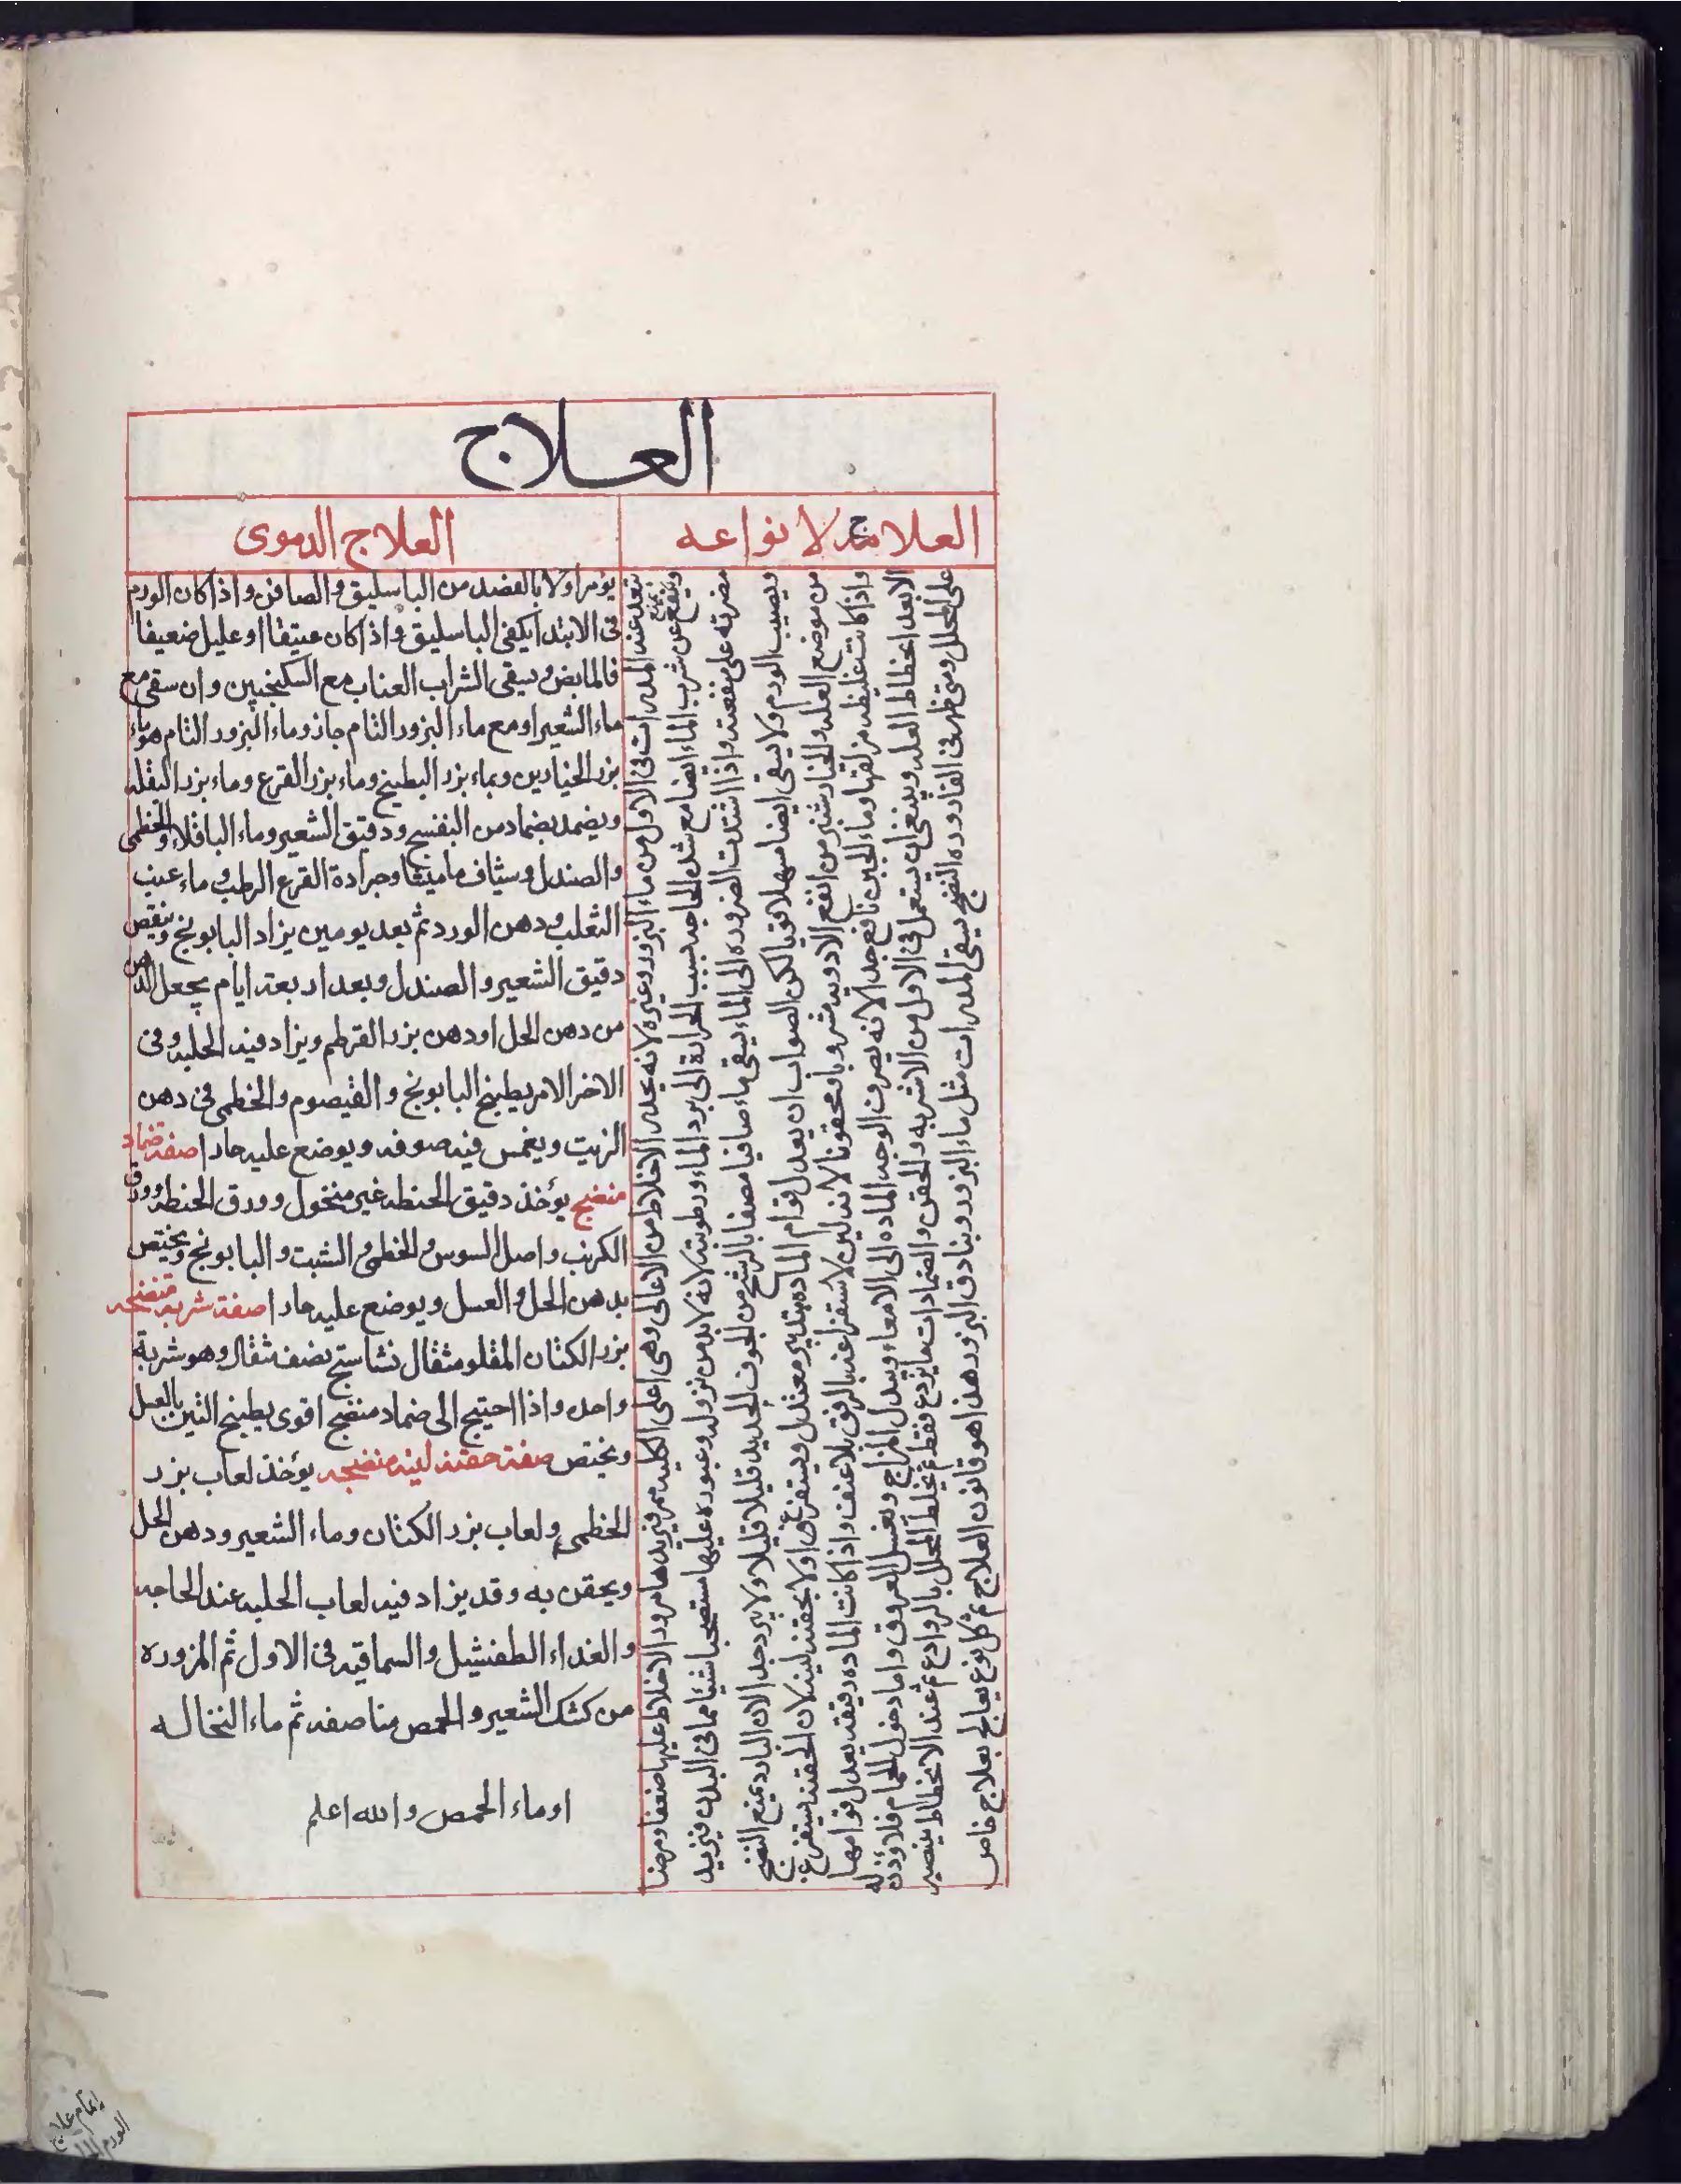 العلاج
العلاج لانواعه
العلاج الدموى
يتعد عند المدرات فى الاول من ماء البزور وغيره لانه يحدر الاخلاط من الاعالى وهى اعلى الكليه مرور الاخلاط عليها ضعفا ومرضا
ويمنع عن شرب الماء ايضا مع شد الحاجه بسبب الحرارة الى برد الماء ورطوبته لانه لا بد من نزوله وعبوره عليها مستصحبا شيئا مما فى البدن فيزيد
مضرته على نفعته واذا اشتدت الضروره الى الماء يسقى ماء صافيا مصفا بالرشح من الجوف الجديد قليلا قليلا ولا يبرد جدا لان البارد يمنع النضج
ويصيب الورم ولا يسقى ايضا مسهلا قويا لكن الصواب ان يعدل قوام الماده بتدبير معتدل ويستفرغ اولا بحقنه لينه لان الحقنه تستفرغ
من موضع العله والخيارشنبر من انفع الادويه مشروبا ومحقونا لانه لين لاستفراغه بالرفق بلا عنف واذا كانت الماده رقيقه يعدل قوامها
واذا كانت غليظه مزلقها وماء الجبن نافع جدا لانه يصرف الوجه الماده الى الامعاء ويبدل المزاج ويغسل العروق واما دخول الحمام فلا وذن له
الا بعد انحطاط العله وينبغى ان يستعمل فى الاول من الاشربه والحقن والضمادات ما يردع فقط ثم يخلط المحلل بالروادع ثم عند الانحطاط يقتصر
على المحلل ومتى ظهر فى القاروره النضج يسقى المدرات مثل ماء البزور وبنادق البزور هذا هو قانون العلاج ثم كل نوع يعالج بعلاج خاص
يؤمر اولا بالفصد من الباسليق والصافن واذا كان الورم
فى الابتدا يكفى الباسليق واذا كان عتيقا او عليل ضعيفا
فالمابض ويسقى الشراب العناب مع السكنجبين وان سقى مع
ماء الشعير او مع ماء البزور التام جاز وماء البزور التام هو ماء
بزر الخيارين وبماء بزر البطيخ وماء بزر القرع وماء بزر البقله
ويضمد بضماد من البنفسج ودقيق الشعير وماء الباقلاء والخطمى
والصندل وشياف ماميثا وجرادة القرع الرطب وماء عنب
الثعلب ودهن الورد ثم بعد يومين يزاد البابونج وينقص
دقيق الشعير والصندل وبعد اربعة ايام يجعل الدهن
من دهن الحل او دهن بزر القرطم ويزاد فيه الحلبه وفى
الاخر الامر يطبخ البابونج والقيصوم والخطمى فى دهن
الزيت ويغمس فيه صوفه ويوضع عليه حارا صفة ضماد
منضج يؤخذ دقيق الحنطه غير منخول وورق الحنطه وورق
الكرنب واصل السوس والخطمى والشبت والبابونج ويختص
بدهن الحل والعسل ويوضع عليه حارا صفة شربه منضجه
بزر الكتان المقلو مثقال نشاستج نصف مثقال وهو شربة
واحده واذا احتيج الى ضماد منضج اقوى يطبخ التين بالعسل
ويختص صفة حقنه لينه منضجه يؤخذ لعاب بزر
الخطمى ولعاب بزر الكتان وماء الشعير ودهن الحل
ويحقن به وقد يزاد فيه لعاب الحلبه عند الحاجه
والغذاء الطفشيل والسماقيه فى الاول ثم المزوره
من كشك الشعير والحمص مناصفه ثم ماء النخاله
او ماء الحمص والله اعلم
اتمام علاج
الورم